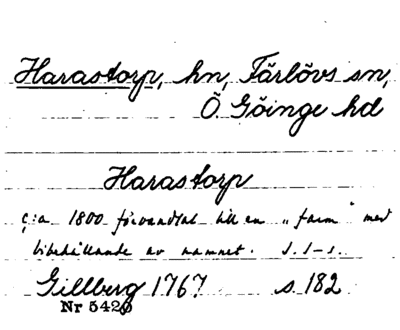 Harastorp, hn, Färlövs sn,
Ö. Göinge hd
Harastorp
c:a 1800 förvandlat till en „farm" med
bibehållande av namnet. S. 1-1.
Gillberg 1767 s. 182
Nr 5420